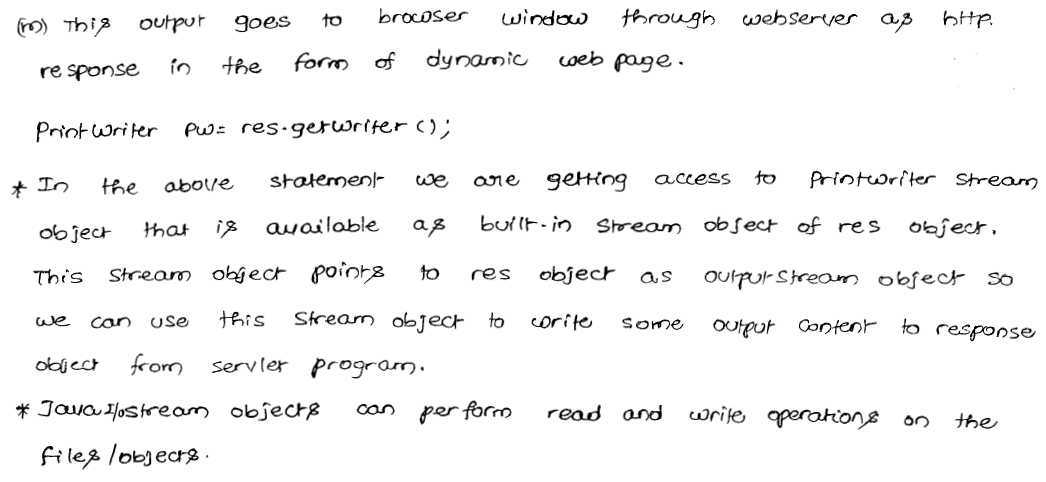 (m) This output goes to browser window through webserver as http
response in the form of dynamic web page.
PrintWriter pw= res.getWriter ();
* In the above statement we are getting access to Printwriter stream
object that is available as built-in stream object of res object.
This stream object points to res object as outputstream object so
we can use this stream object to write some output content to response
object from servlet program.
* Java I/o stream objects can perform read and write operations on the
files/objects.